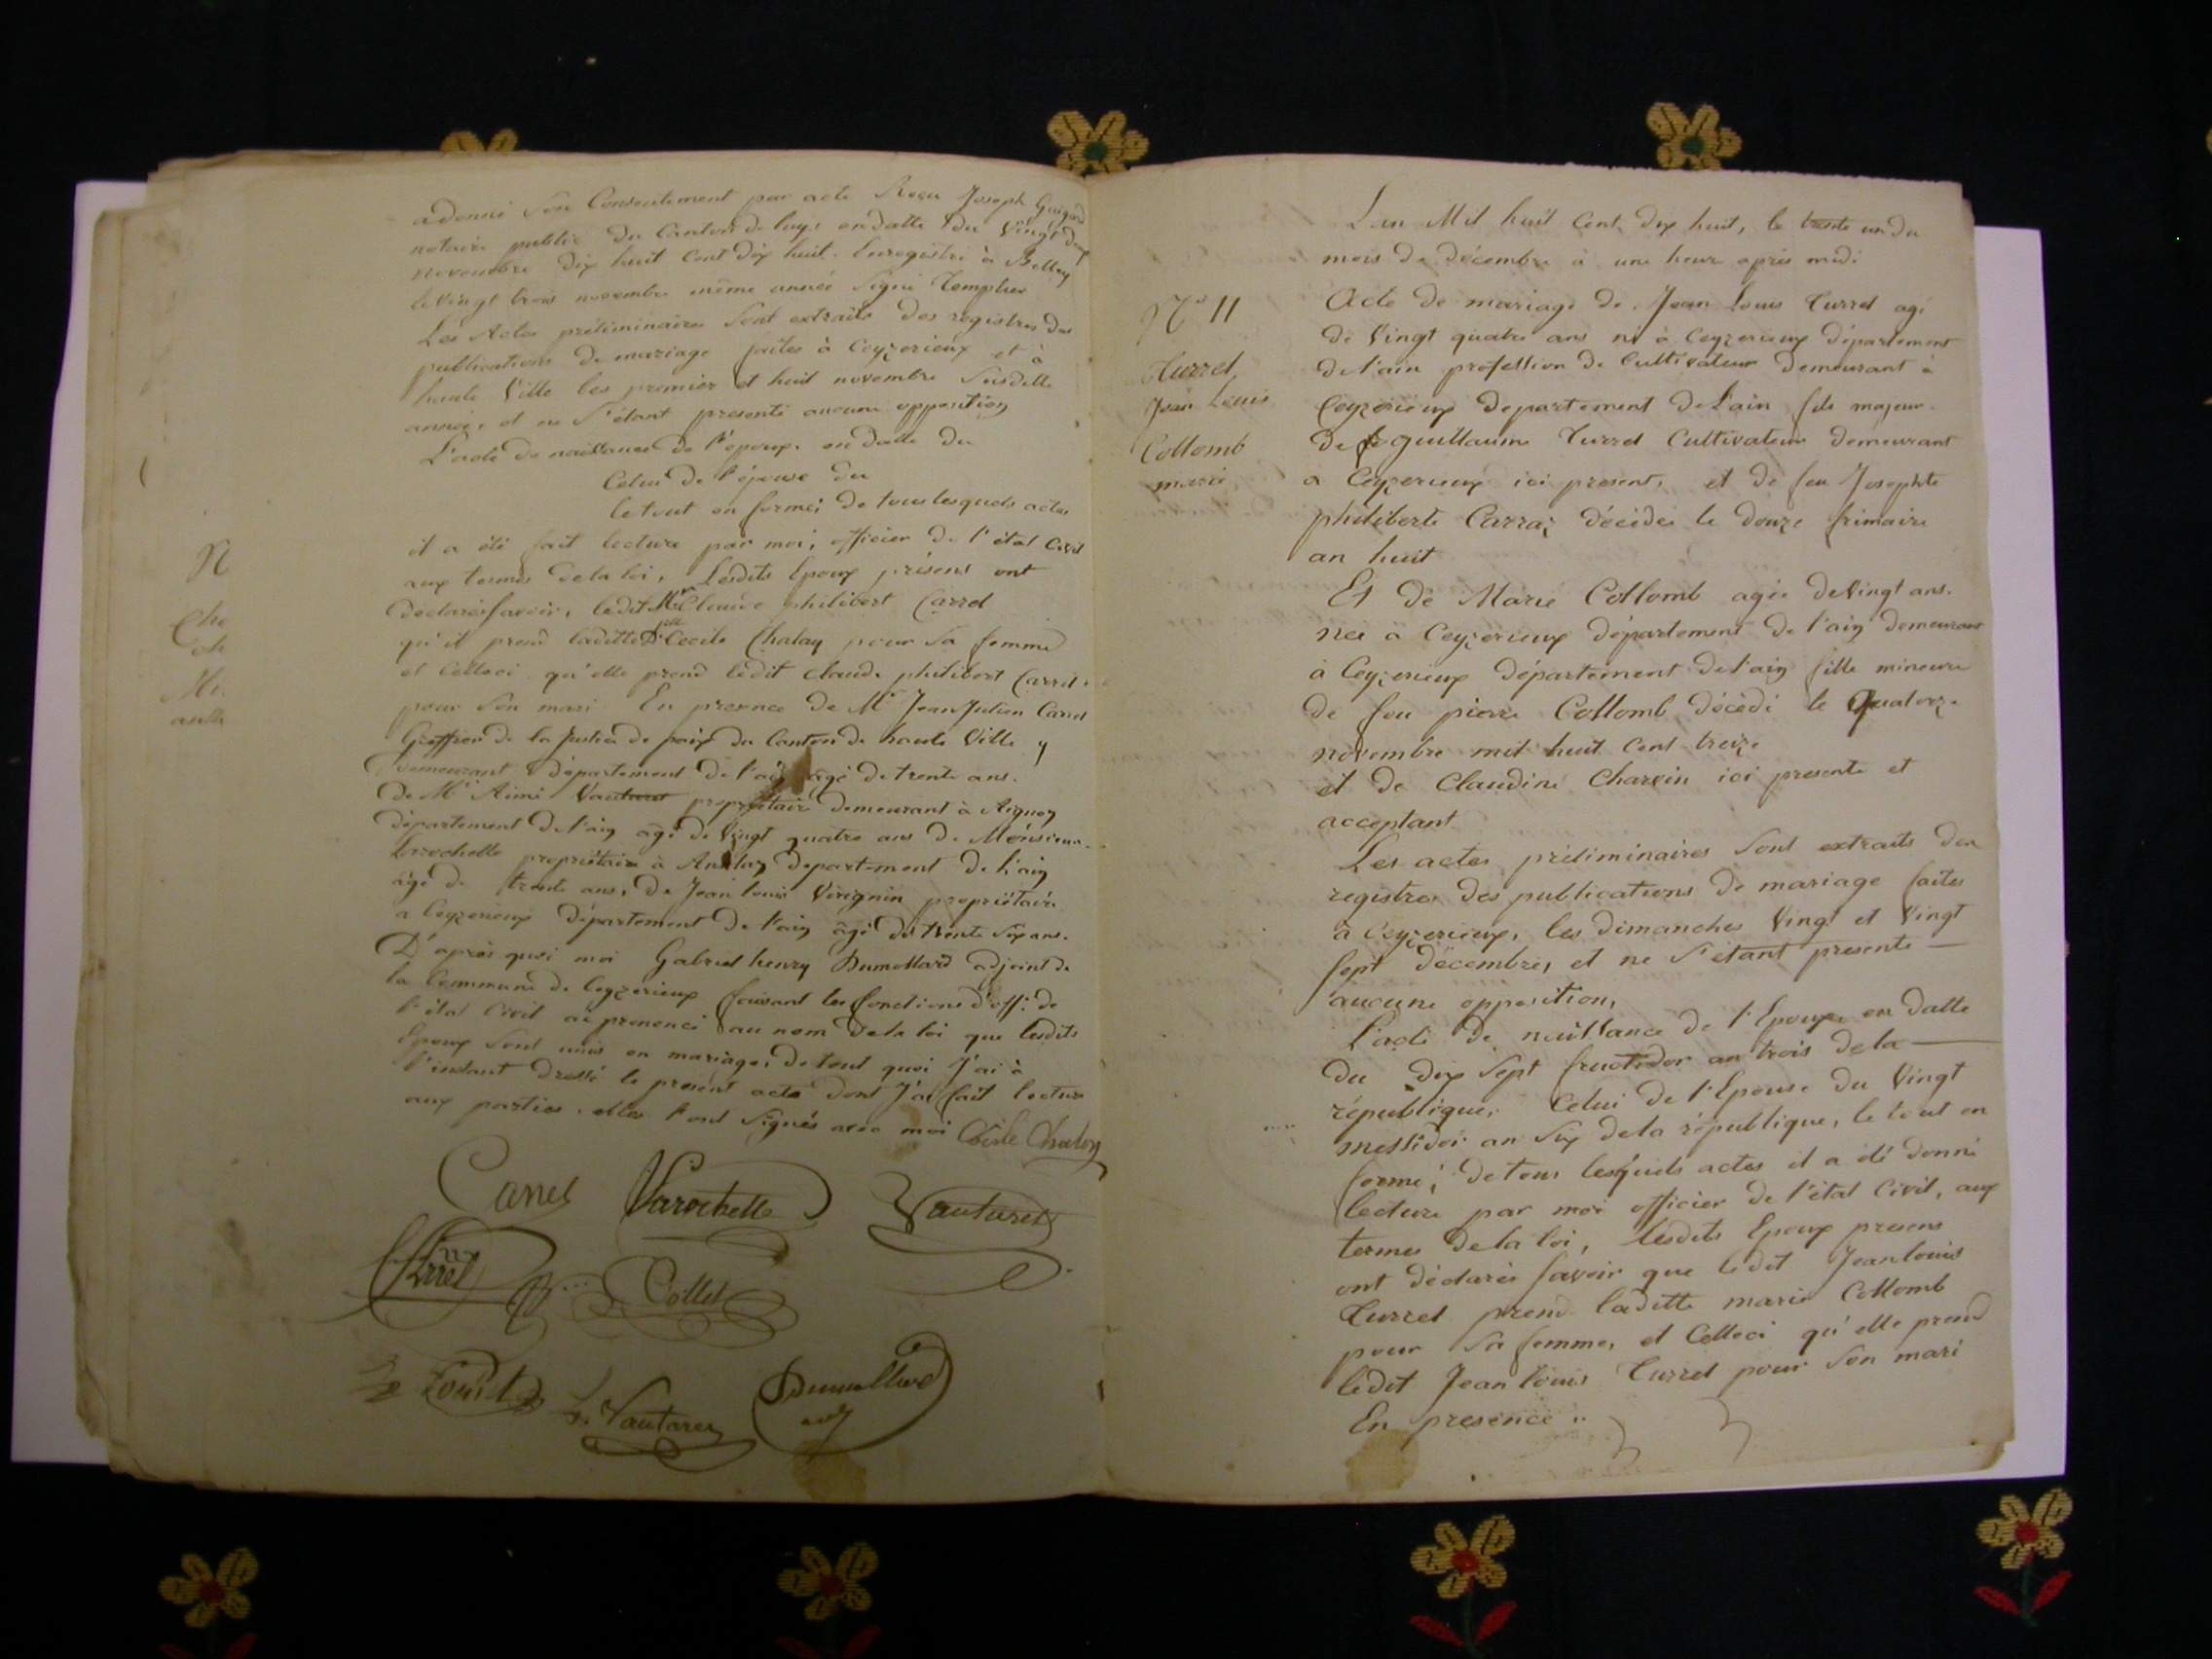 a donné son Consentement par acte Reçu Joseph Guigard
notaire public du Canton de en datte du Vingt deux
novembre dix huit Cent dix huit. Enregistré à Belley
le Vingt trois novembre même année Signé Templier
Les Actes préliminaires Sont extraits des registres des
publications de mariage faites à Ceyzerieux et à
haute Ville les premier et huit novembre Susditte
année, et ne S'étant presenté aucune opposition
L'acte de naissance de l'époux en datte du
Celui de l'épouse du
le tout en forme; de tous lesquels actes
il a été fait lecture par moi, officier de l'état Civil
aux termes de la loi, Lesdits Epoux présens ont
declarés savoir, ledit Mr Claude philibert Carrel
qu'il prend laditte Dlle Cecile Chalay pour Sa femme
et Celleci qu'elle prend ledit claude philibert Carrel
pour Son mari En presence de Mr Jean Julien Carrel
Greffier de la Justice de paix du Canton de haute Ville y
demeurant département de l'ain agé de trente ans.
de Mr Aimé Vautaret propriétaire demeurant à
département de l'ain agé de Vingt quatre ans de Monsieur
propriétaire à departement de l'ain
agé de trente ans, de Jean louis Virignin propriétaire
a Ceyzerieux département de l'ain agé de trente Six ans.
D'après quoi moi Gabriel henry Dumollard adjoint de
la Commune de Ceyzerieux faisant les fonctions d'offi. de
l'état Civil ai prononcé au nom de la loi que lesdits
Epoux Sont unis en mariage, de tout quoi J'ai à
l'instant dressé le present acte dont J'ai fait lecture
aux parties. elles l'ont Signés avec moi Cécile Chaley
Carrel Varochelle Vautaret
Collet
Vautaret Dumollard
adj
N
Che
Mr.
L'an Mil huit Cent dix huit, le trente un du
mois de décembre à une heure après midi
No 11
Turrel
Jean Louis
Collomb
marie
Acte de mariage de Jean Louis Turrel agé
de Vingt quatre ans né à Ceyzerieux département
de l'ain profession de Cultivateur demeurant à
Ceyzerieux departement de l'ain fils majeur
de guillaume Turrel Cultivateur demeurant
a Ceyzerieux ici present, et de feu Josephte
philiberte Carraz décédée le douze frimaire
an huit
Et de Marie Collomb agée de Vingt ans.
née à Ceyzerieux département de l'ain demeurant
à Ceyzerieux département de l'ain fille mineure
de feu pierre Collomb décédé le Quatorze
novembre mil huit Cent treize
et de Claudine Charvin ici presente et
acceptant
Les actes préliminaires Sont extraits des
registres des publications de mariage faites
à Ceyzerieux, les dimanches Vingt et Vingt
Sept décembre, et ne S'étant presenté
aucune opposition,
L'acte de naissance de l'Epoux en datte
du dix Sept fructidor an trois de la
république, Celui de l'Epouse du Vingt
messidor an Six de la république, le tout en
forme; de tous lesquels actes il a été donné
lecture par moi officier de l'état Civil, aux
termes de la loi, lesdits Epoux presens
ont déclarés savoir que ledit Jean louis
Turrel prend laditte marie Collomb
pour Sa femme, et Celleci qu'elle prend
ledit Jean louis Turrel pour Son mari
En presence